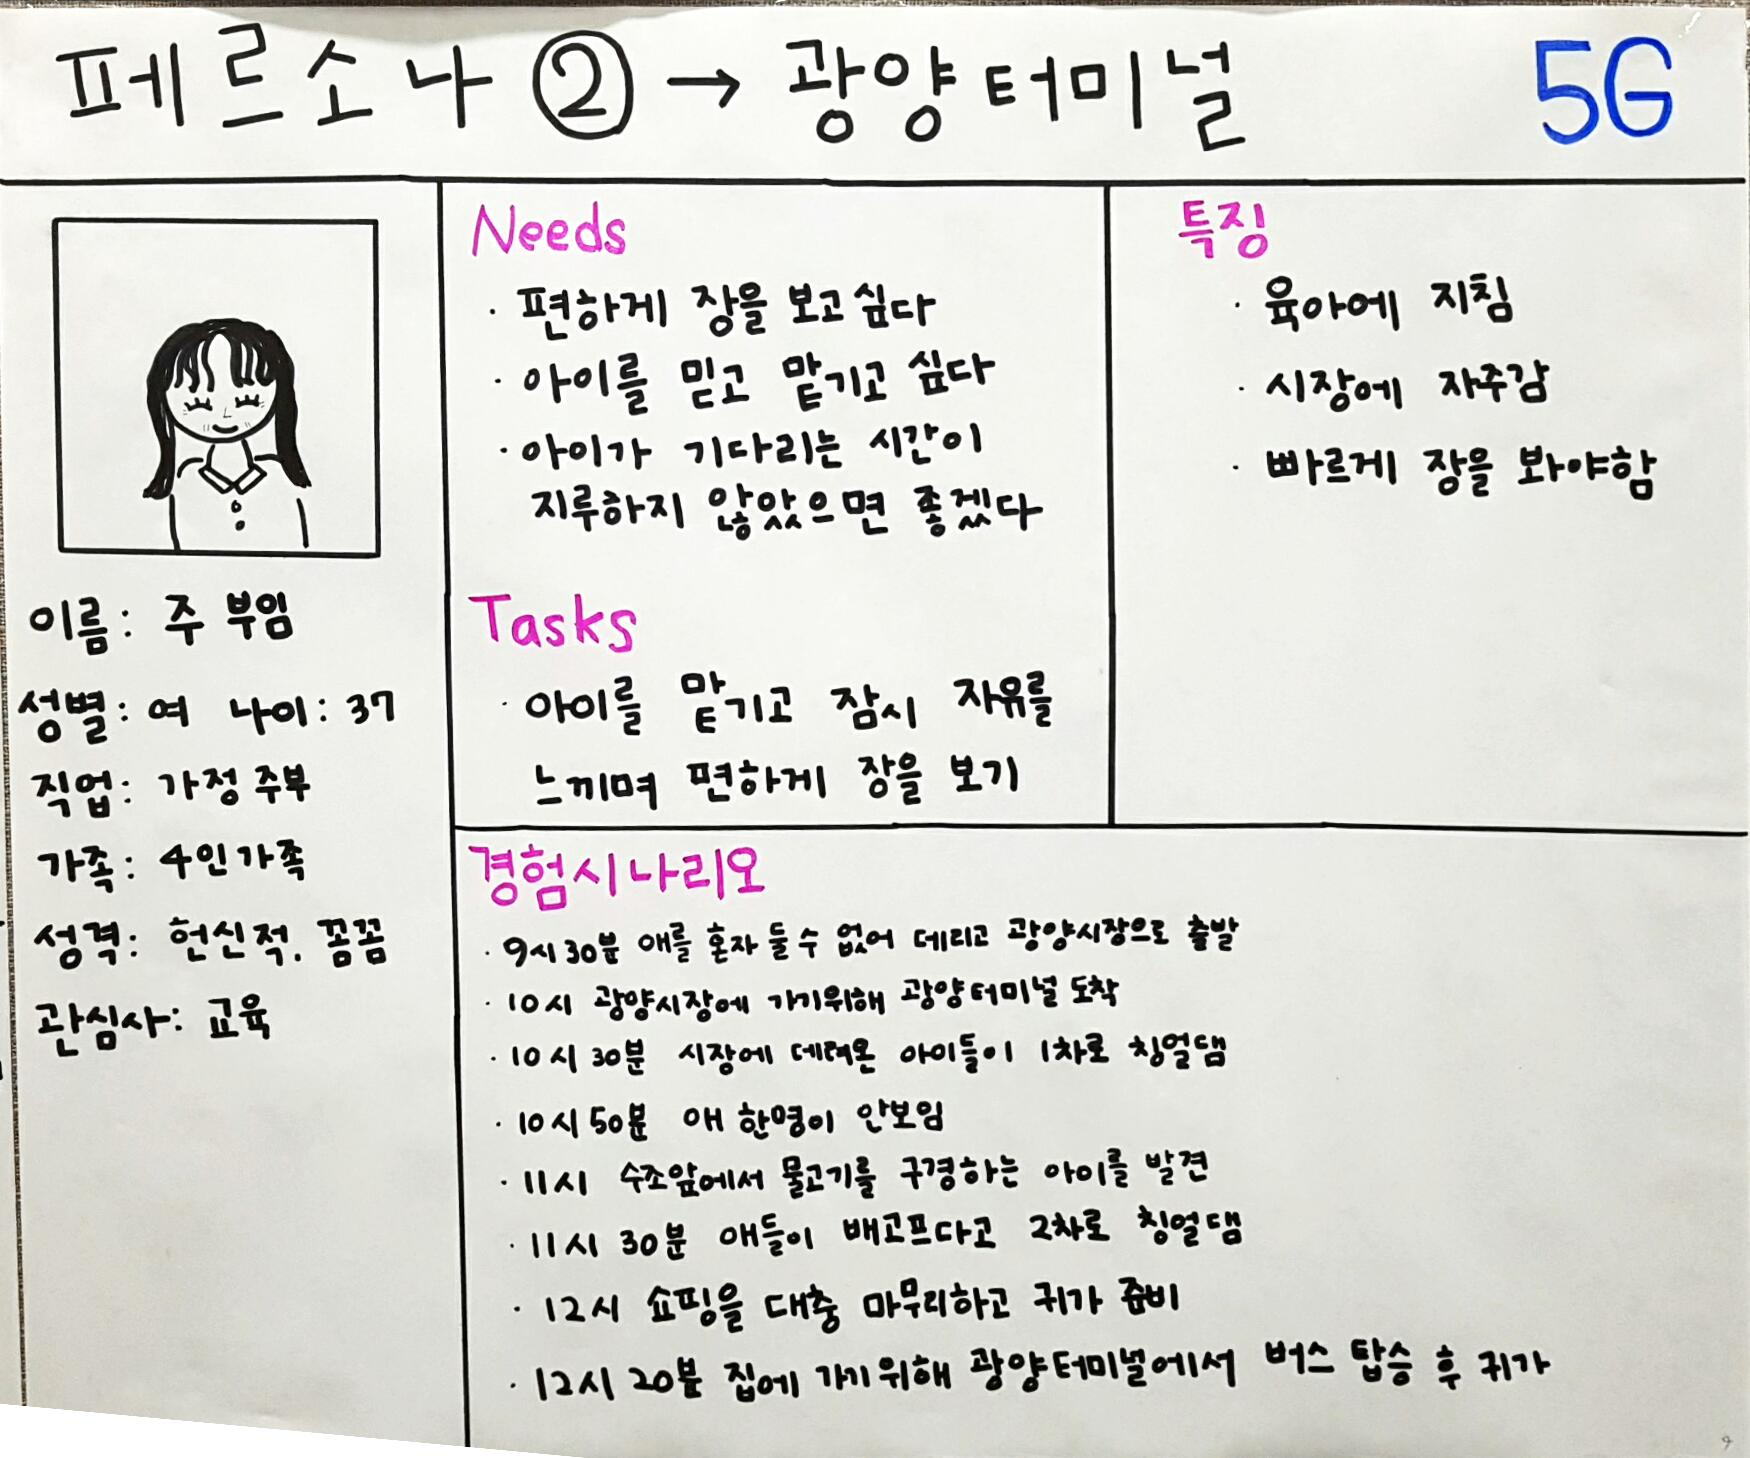 페르소나 ② → 광양터미널 5G
이름: 주 부임
성별: 여 나이: 37
직업: 가정주부
가족: 4인가족
성격: 헌신적. 꼼꼼
관심사: 교육
Needs
· 편하게 장을 보고싶다
· 아이를 믿고 맡기고 싶다
· 아이가 기다리는 시간이
지루하지 않았으면 좋겠다
Tasks
· 아이를 맡기고 잠시 자유를
느끼며 편하게 장을 보기
특징
· 육아에 지침
· 시장에 자주감
· 빠르게 장을 봐야함
경험시나리오
· 9시30분 애를 혼자 둘 수 없어 데리고 광양시장으로 출발
· 10시 광양시장에 가기위해 광양터미널 도착
· 10시 30분 시장에 데려온 아이들이 1차로 칭얼댐
· 10시50분 애 한명이 안보임
· 11시 수조앞에서 물고기를 구경하는 아이를 발견
· 11시 30분 애들이 배고프다고 2차로 칭얼댐
· 12시 쇼핑을 대충 마무리하고 귀가 준비
· 12시 20분 집에 가기위해 광양터미널에서 버스 탑승 후 귀가